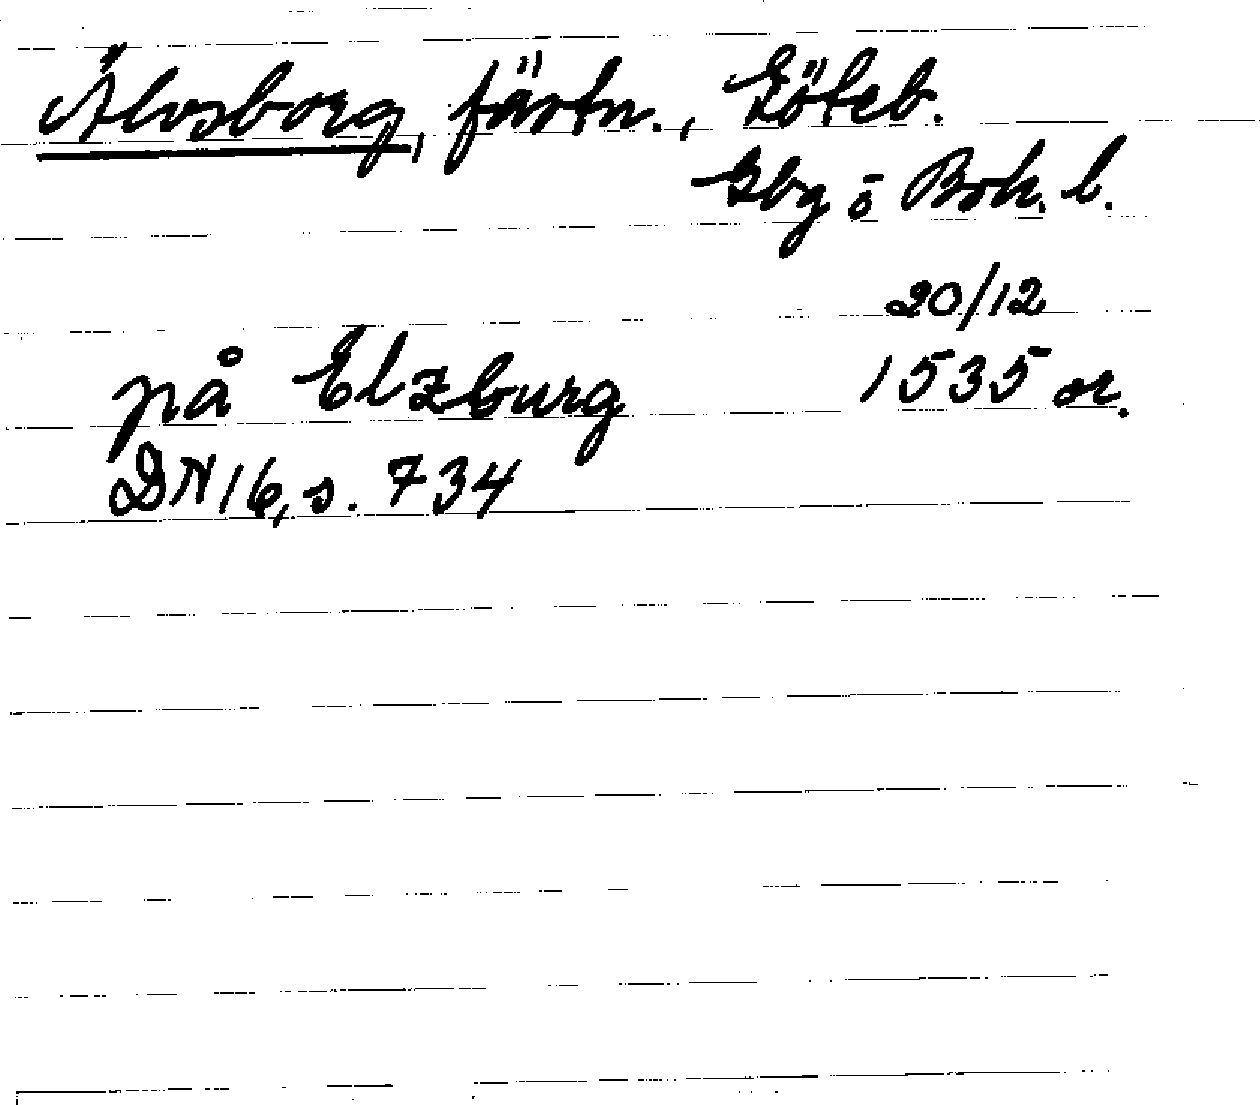 Älvsborg, fästn., Göteb.
Gbg o Boh. l.
20/12
på Elzburg 1535 or.
DN 16, s. 734